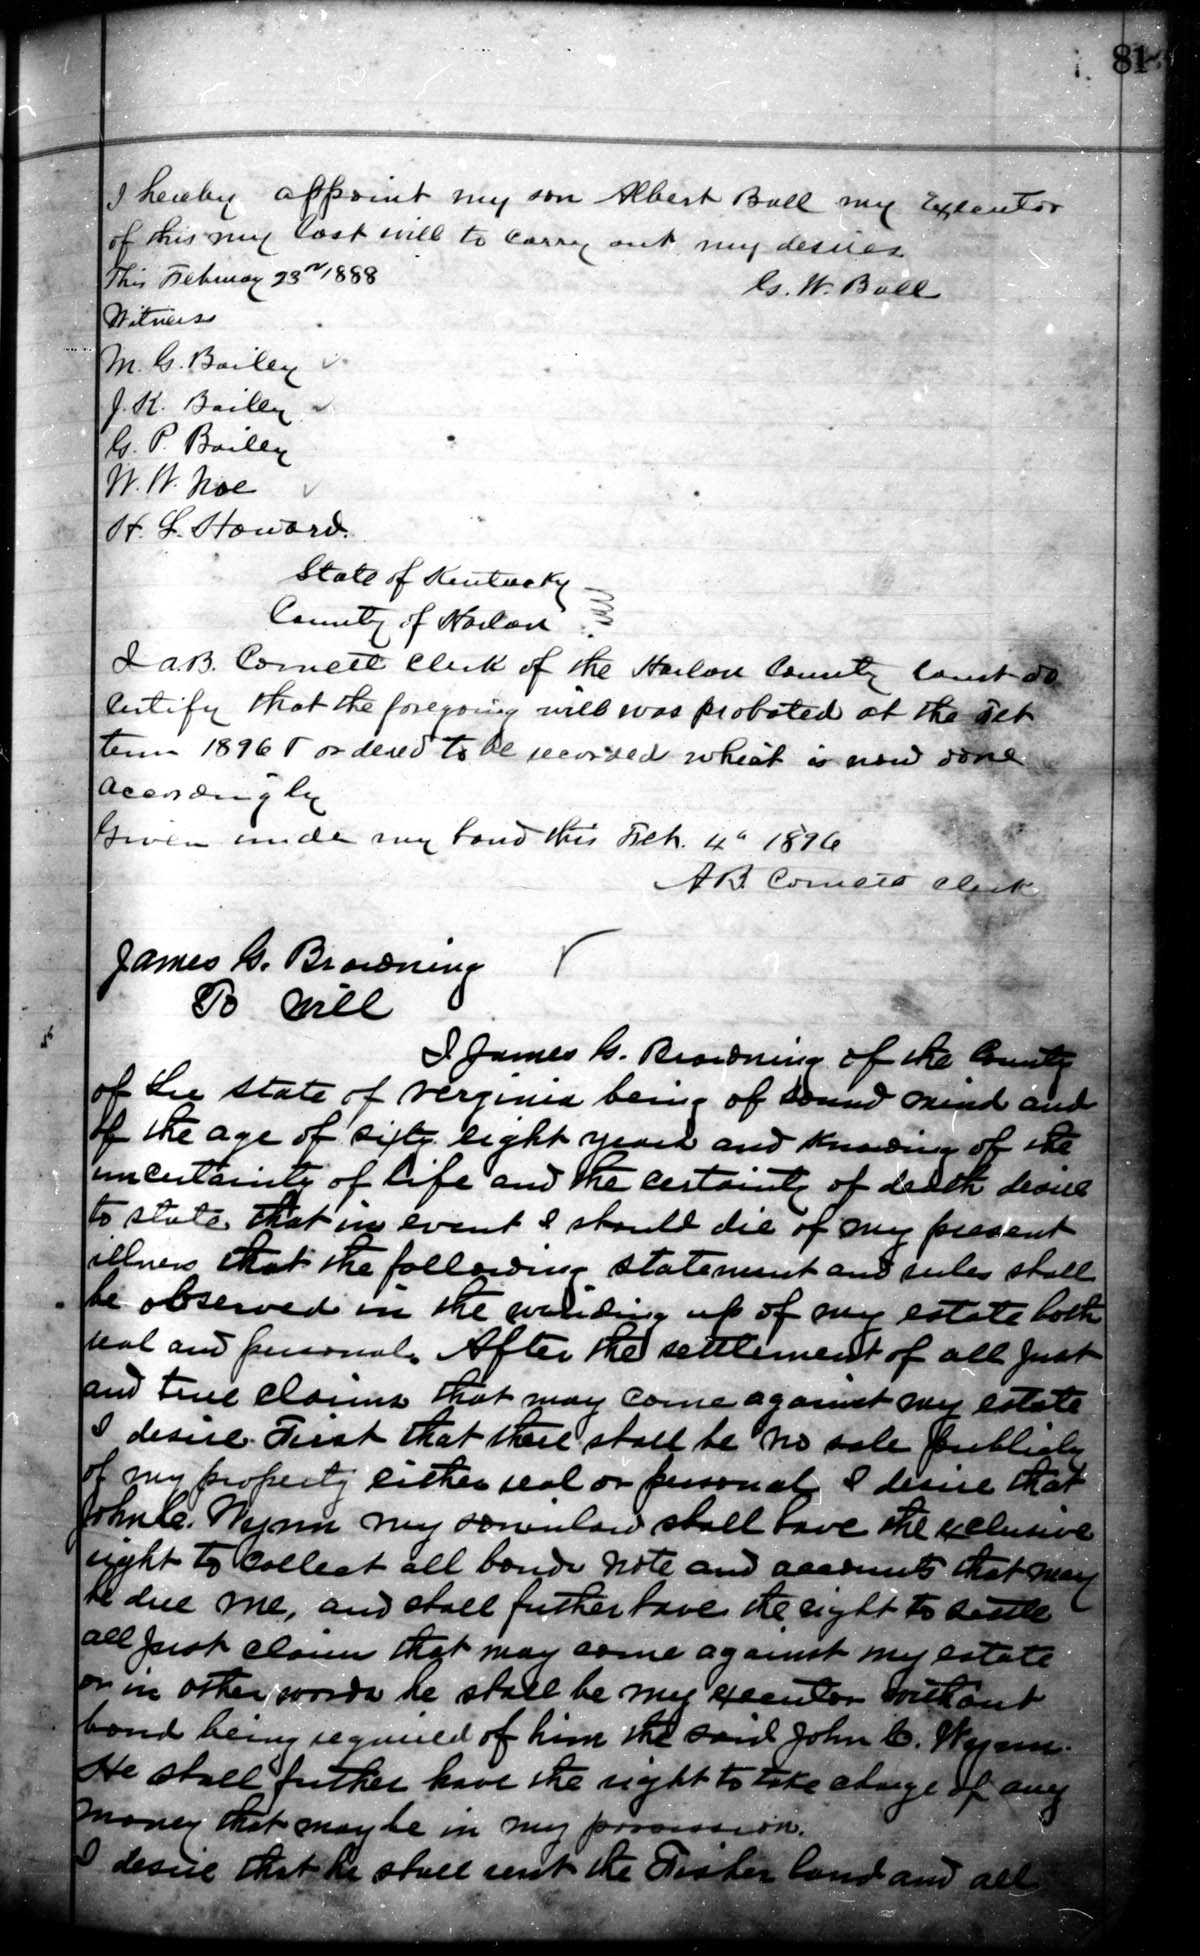 81
I hereby appoint my son Albert Ball my Executor
of this my last will to carry out my desires
This February 23rd 1888
G. W. Ball
Witness
M. G. Bailey
J. K. Bailey
G. P. Bailey
W. W. Noe
H. L. Howard.
State of Kentucky
County of Harlan
I A.B. Cornett Clerk of the Harlan County Court do
certify that the foregoing will was probated at the Feb
term 1896 & ordered to be recorded which is now done
accordingly
Given under my hand this Feb. 4" 1896
A B. Cornett Clerk
James G. Browning
To Will
I James G. Browning of the County
of Lee State of Verginia being of sound mind and
of the age of sixty eight years and knowing of the
uncertainty of life and the certainty of death desire
to state that in event I should die of my present
illness that the following statement and rules shall
be observed in the winding up of my estate both
real and personal. After the settlement of all just
and true claims that may come against my estate
I desire First that there shall be no sale publicly
of my property either real or personal I desire that
John C. Wynn my soninlaw shall have the exclusive
right to collect all bonds note and accounts that may
be due me, and shall futher have the right to settle
all just claims that may come against my estate
or in other words he shall be my executor without
bond being required of him the said John C. Wynn.
He shall futher have the right to take charge of any
money that maybe in my possession.
I desire that he shall rent the Fisher land and all